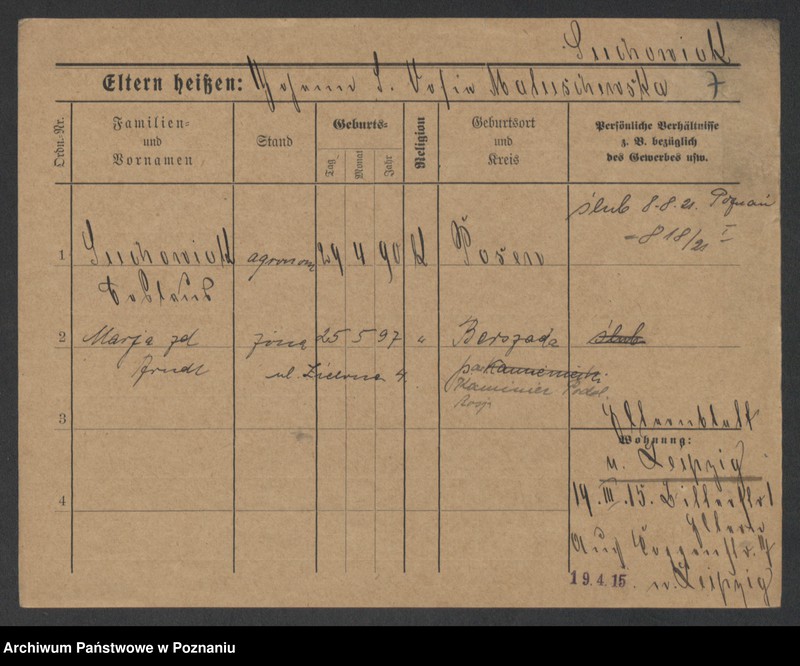 Suchowiak
Eltern heißen: Johann S. Sofia Maluschewska
Ordn.-Nr.
Familien- und Vornamen
Stand
Geburts-
Tag
Monat
Jahr
Religion
Geburtsort und Kreis
Persönliche Verhältnisse z. B. bezüglich des Gewerbes usw.
ślub 8.8.21. Poznań
818/21 I
1 Suchowiak agronom 29 4 90 K Posen
2 Marja zd żona 25 5 97 " Berszada ślub
Arndt ul. 4.
Kamieniec Podol.
3
Wohnung:
n. Leipzig
19. III. 15.
4
Eltern
19.4.15. n. Leipzig
Archiwum Państwowe w Poznaniu